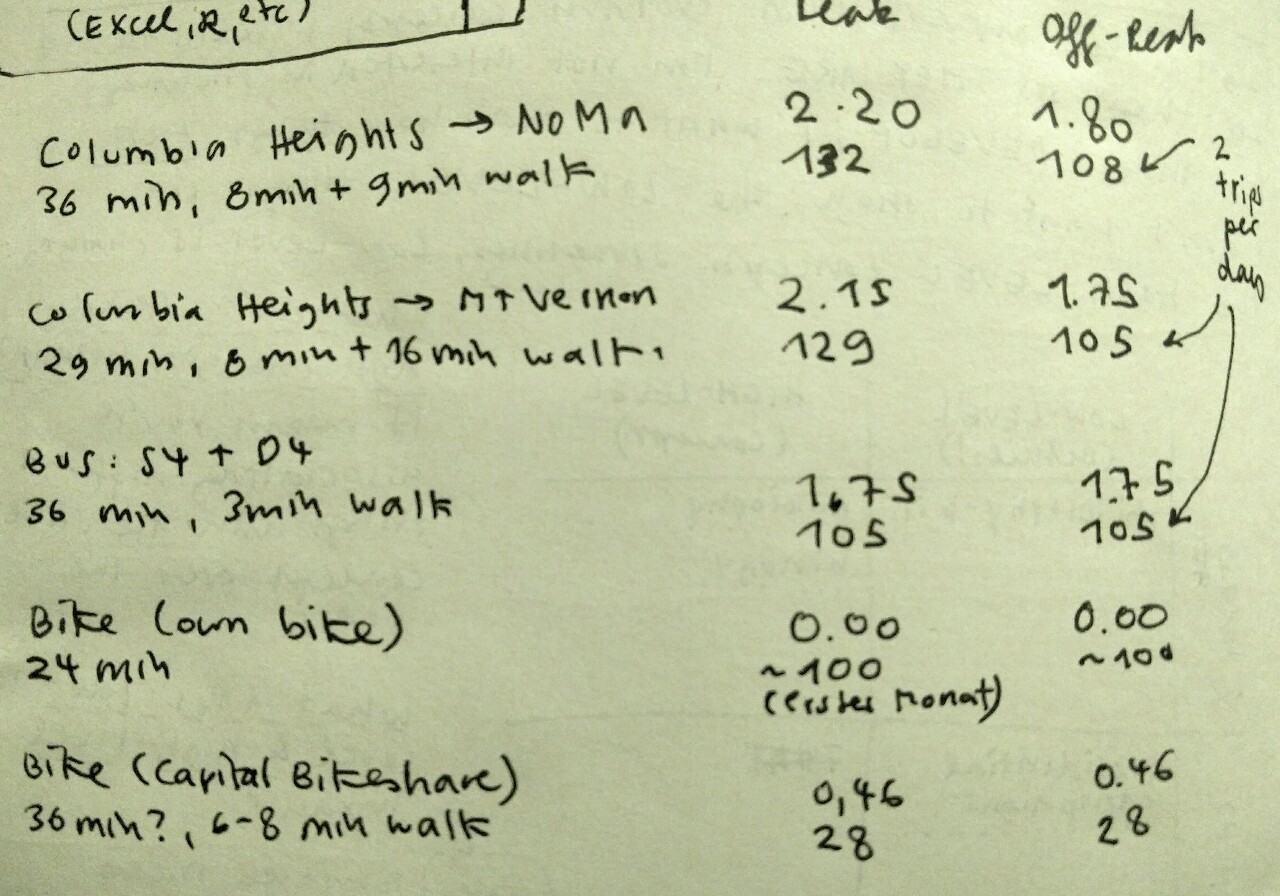 (Excel, R, etc)
Peak Off-Peak
Columbia Heights → NoMa 2.20 1.80
36 min, 8min + 9min walk 132 108
2 trips per day
Columbia Heights → MT Vernon 2.15 1.75
29 min, 8 min + 16 min walk. 129 105
Bus: S4 + D4
36 min, 3min walk 1.75 1.75
105 105
Bike (own bike) 0.00 0.00
24 min ~100 ~100
(erster Monat)
Bike (Capital Bikeshare) 0,46 0.46
36 min?, 6-8 min walk 28 28